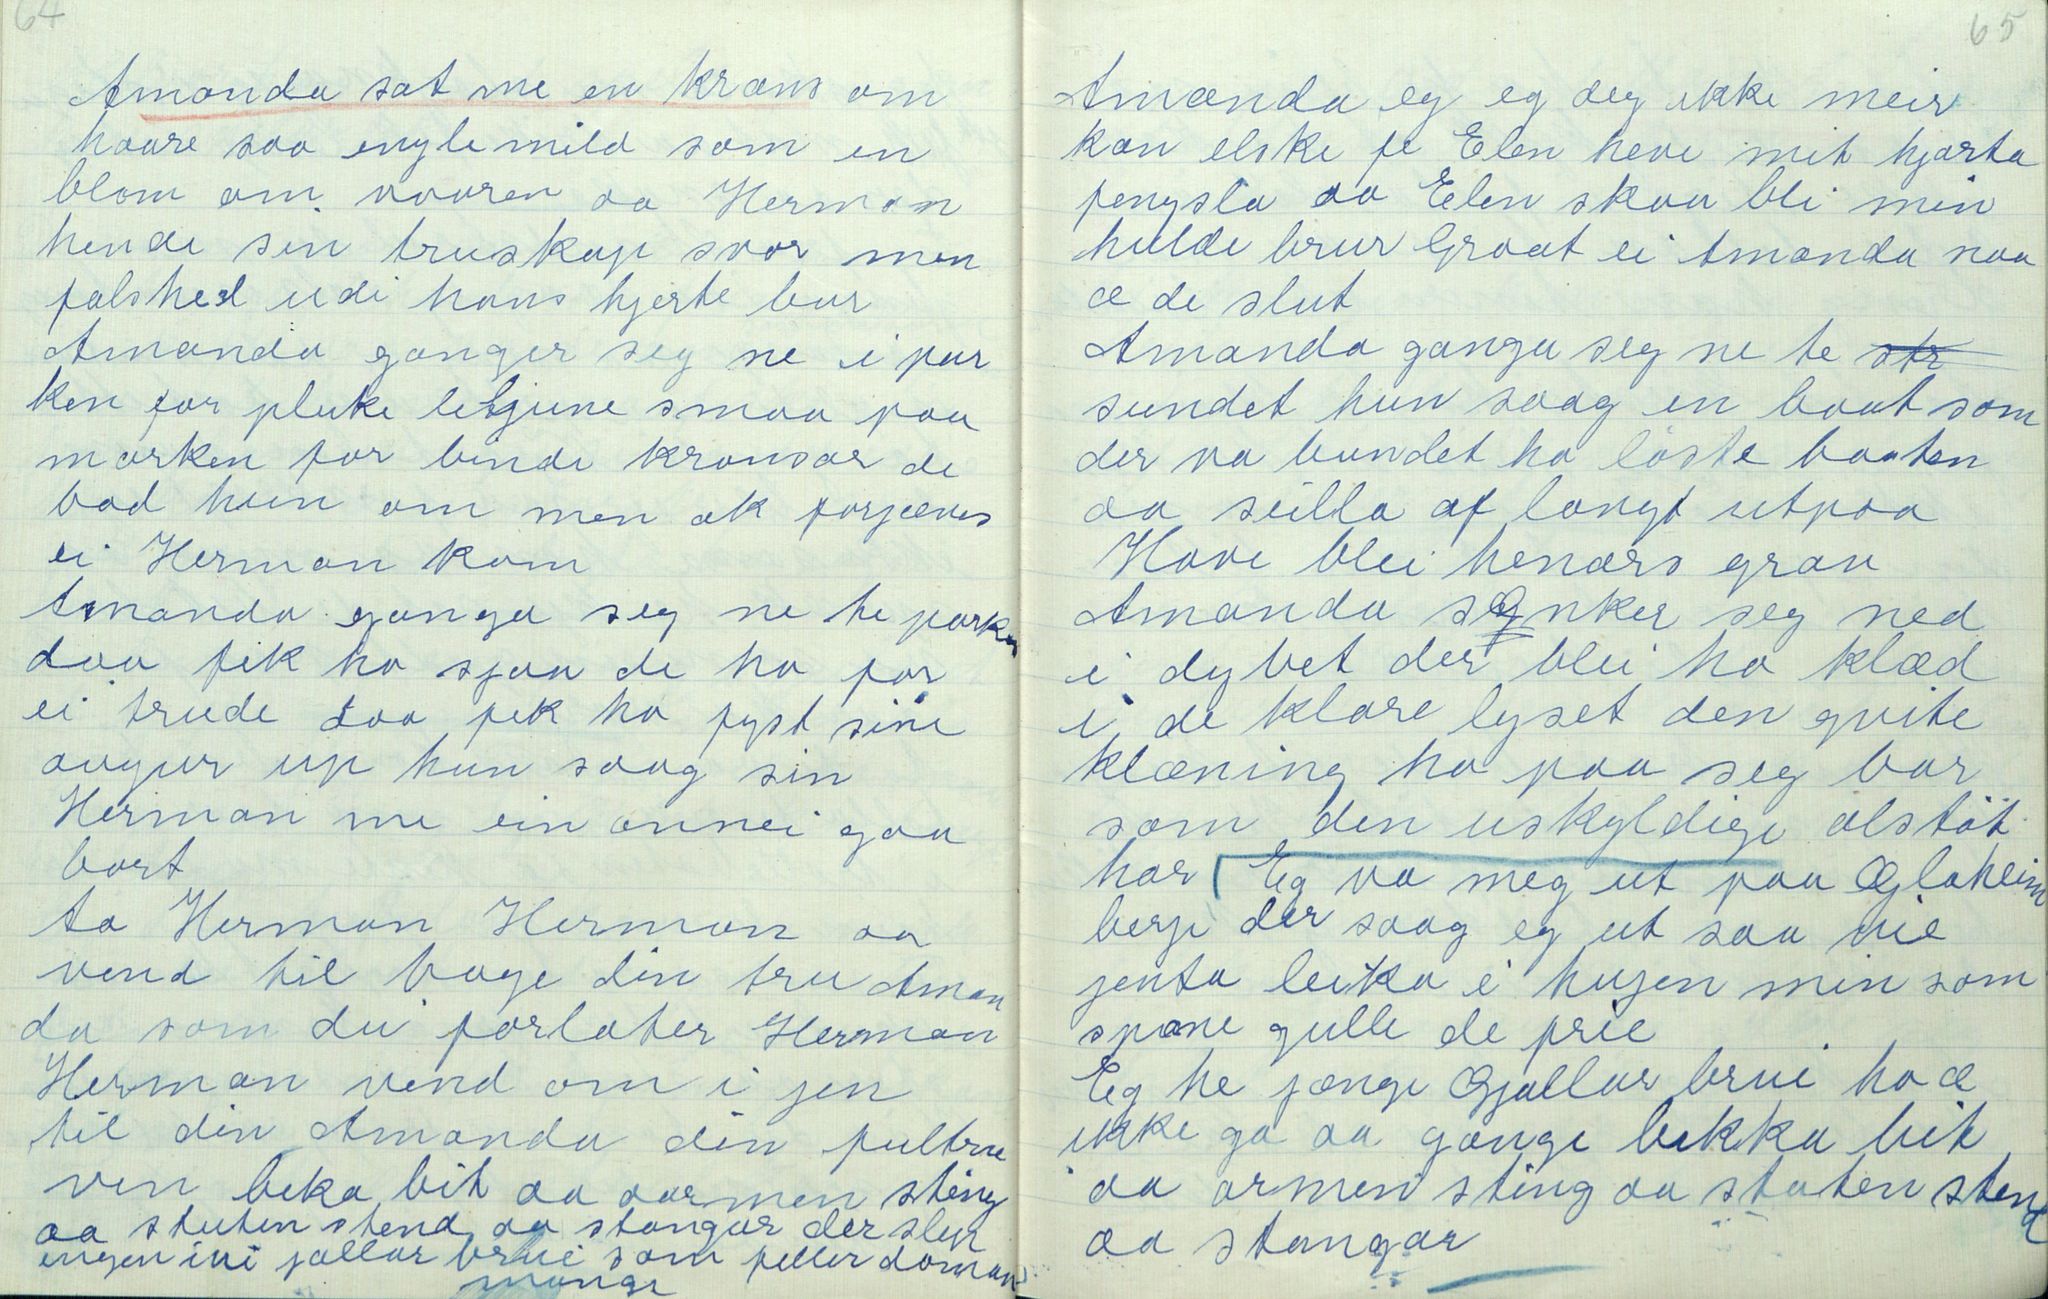 64
Amanda sat me en krans om
haare saa englemild som en
blom om vaaren aa Herman
hende sin truskap svor men
falshed udi hans hjerte bur
Amanda ganger seg ne i par
ken for pluke letjune smaa paa
marken for binde kransar de
bad hun om men ak forjæves
ei Herman kom
Amanda ganga seg ne te parken
daa fik ho sjaa de ho for
ei trude daa fek ho fyst sine
augur up hun saag sin
Herman me ein annei gaa
bort
ta Herman Herman aa
vend til bage din tru Aman
da som du forlater Herman
Herman vend om i jen
til din Amanda din fultrue
ven beka bit aa aarmen sting
aa stuten stend aa stangar der slep
ingen ivi jallar brui som feller doman
mange
65
Amanda eg eg deg ikke meir
kan elske fe Elen heve mit hjarta
fengsla aa Elen skaa bli min
hulde brur Graat ei Amanda naa
æ de slut
Amanda ganga seg ne te str
sundet hun saag en baat som
der va bundet ho löste baaten
aa seilla af langt utpaa
Have blei henars grav
Amanda synker seg ned
i dybet der blei ho klæd
i de klare lyset den qvite
klæning ho paa seg bar
som den uskyldige alstöt
har Eg va meg ut paa Glaheim
berje der saag eg ut saa vie
jenta leika i hugen min som
spøne gulle de frie
Eg he jænge Gjallar brui ho æ
ikke ga aa gange bikka bit
aa ormen sting aa stuten stend
aa stangar